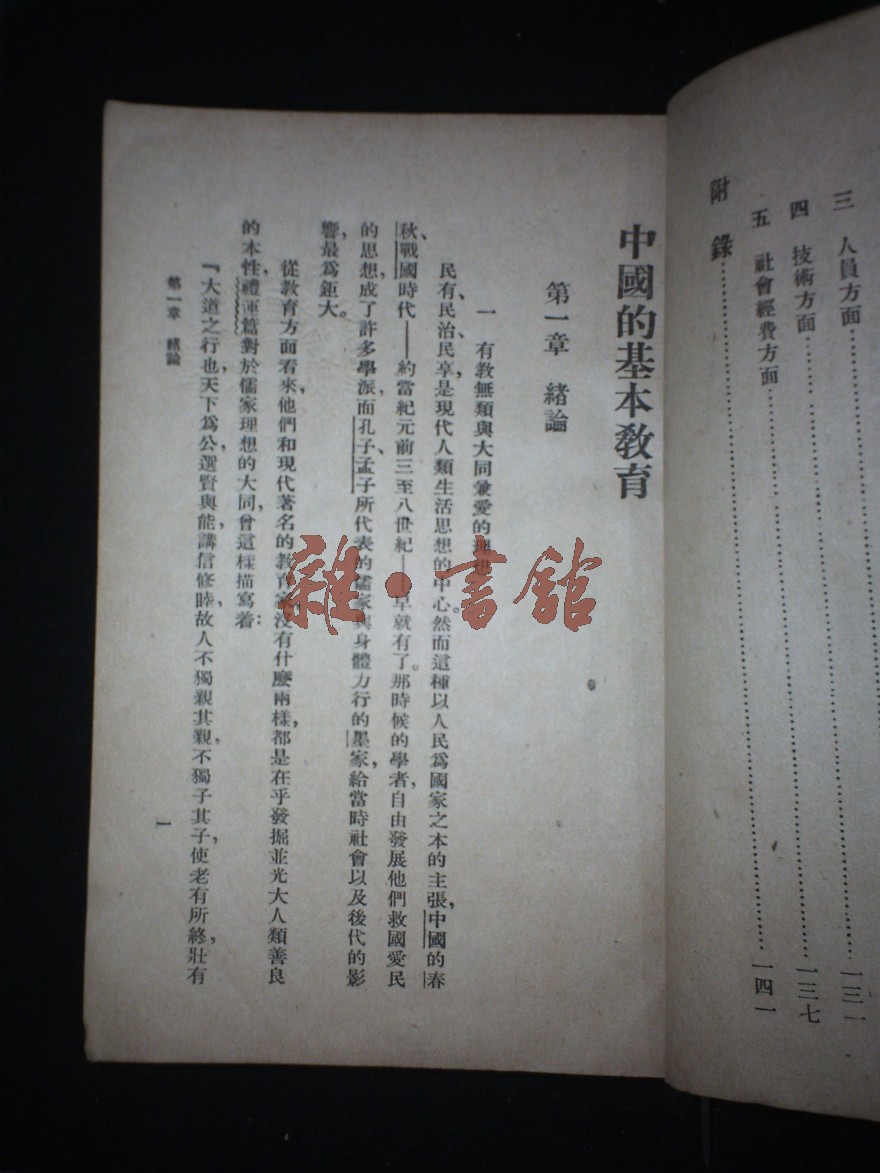 三 人員方面……
四 技術方面……一三一
五 社會經費方面……一三七
附錄……一四一
中國的基本教育
第一章 緒論
一 有教無類與大同兼愛的理想
民有、民治、民享，是現代人類生活思想的中心。然而這種以人民為國家之本的主張，中國的春
秋、戰國時代——約當紀元前三至八世紀——早就有了。那時候的學者，自由發展他們救國愛民
的思想，成了許多學派，而孔子、孟子所代表的儒家與身體力行的墨家，給當時社會以及後代的影
響，最為鉅大。
從教育方面看來，他們和現代著名的教育家沒有什麼兩樣，都是在乎發掘並光大人類善良
的本性，禮運篇對於儒家理想的大同，曾這樣描寫着：
『大道之行也，天下為公，選賢與能，講信修睦，故人不獨親其親，不獨子其子，使老有所終，壯有
第一章 緒論
一
雜·書館